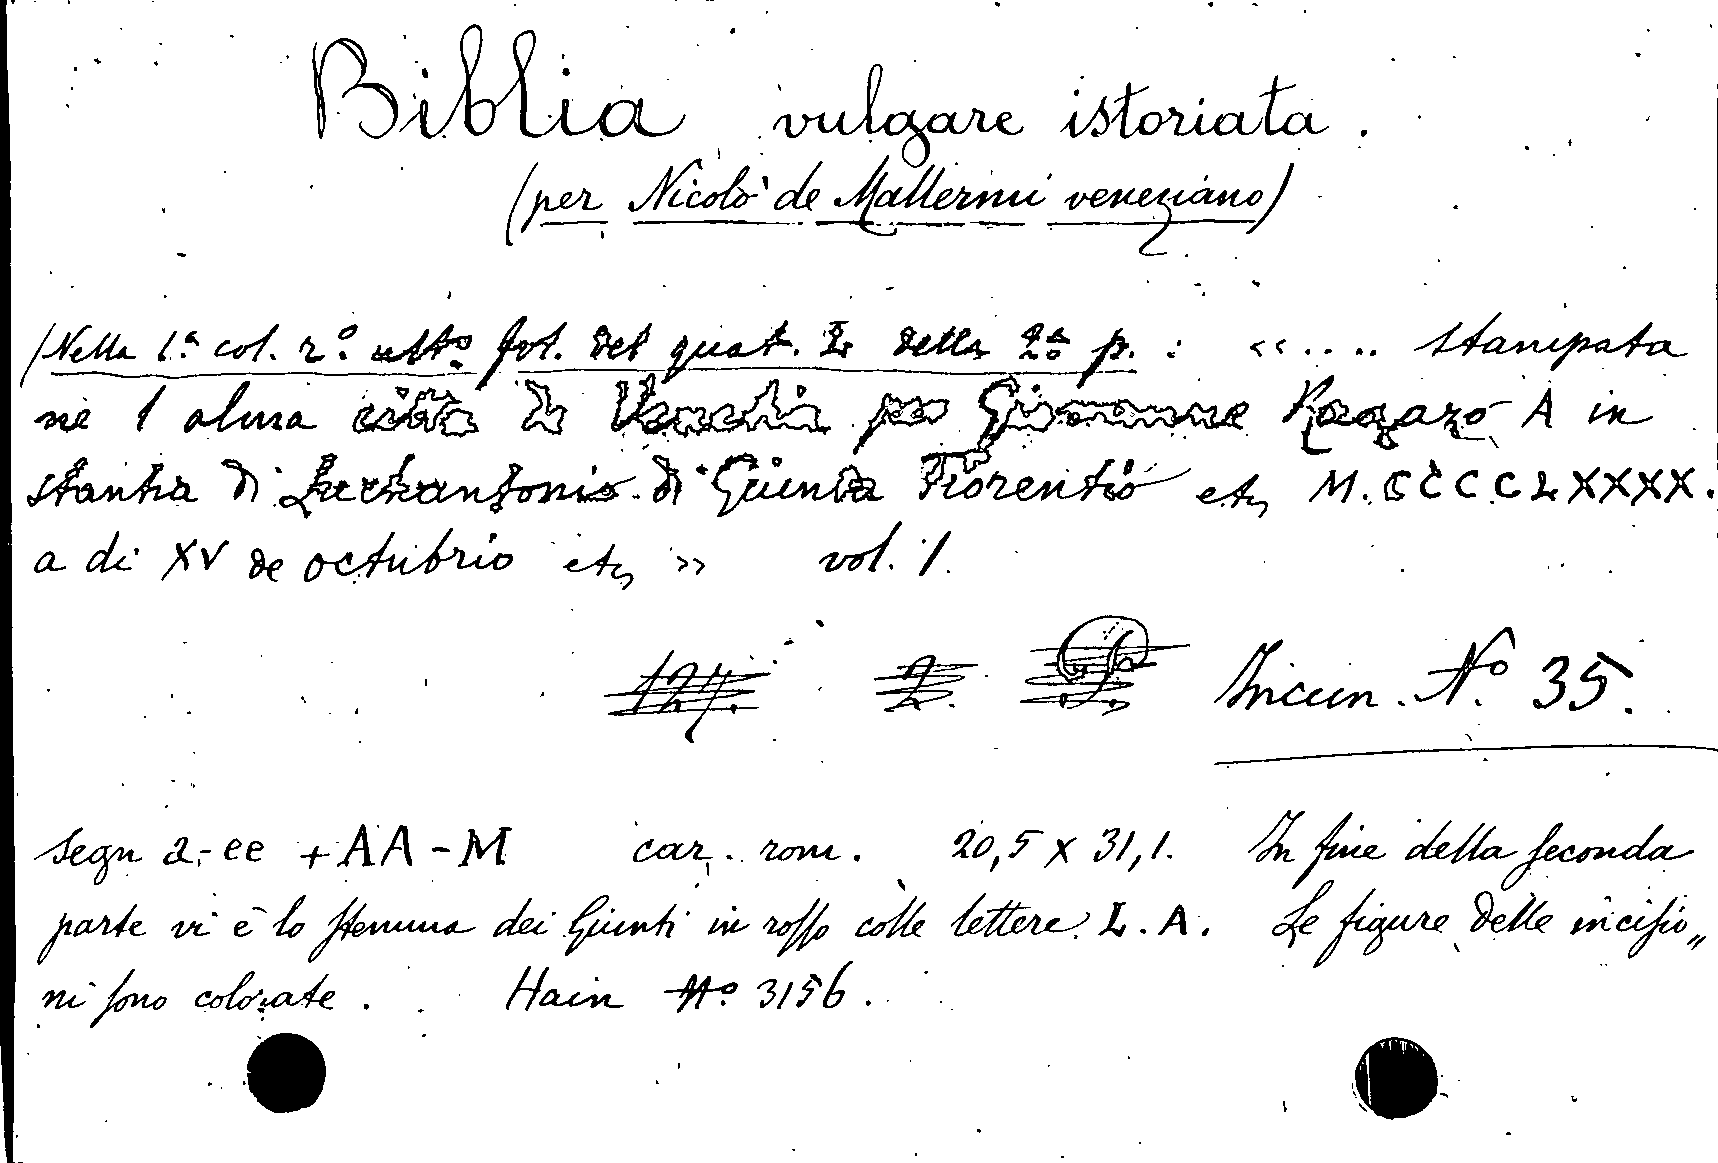 Biblia vulgare istoriata.
(per Nicolò de Mallermi veneziano)
(Nella 1.ª col. r.º ult.º fol. del quat. L della 2.ª p. : «.... stampata
ne l alma città de Venetia per Giovanne Ragazo A in
stantia di Luchantonio di Giunta Fiorentio etc M.CCCCLXXXX.
a di XV de octubrio etc » vol. 1.
127. 2. Incun. Nº 35.
segn a-ee + AA-M car. rom. 20,5 x 31,1. In fine della seconda
parte vi è lo stemma dei Giunti in rosso colle lettere L.A. Le figure delle incisio„
ni sono colorate. Hain Nº 3156.